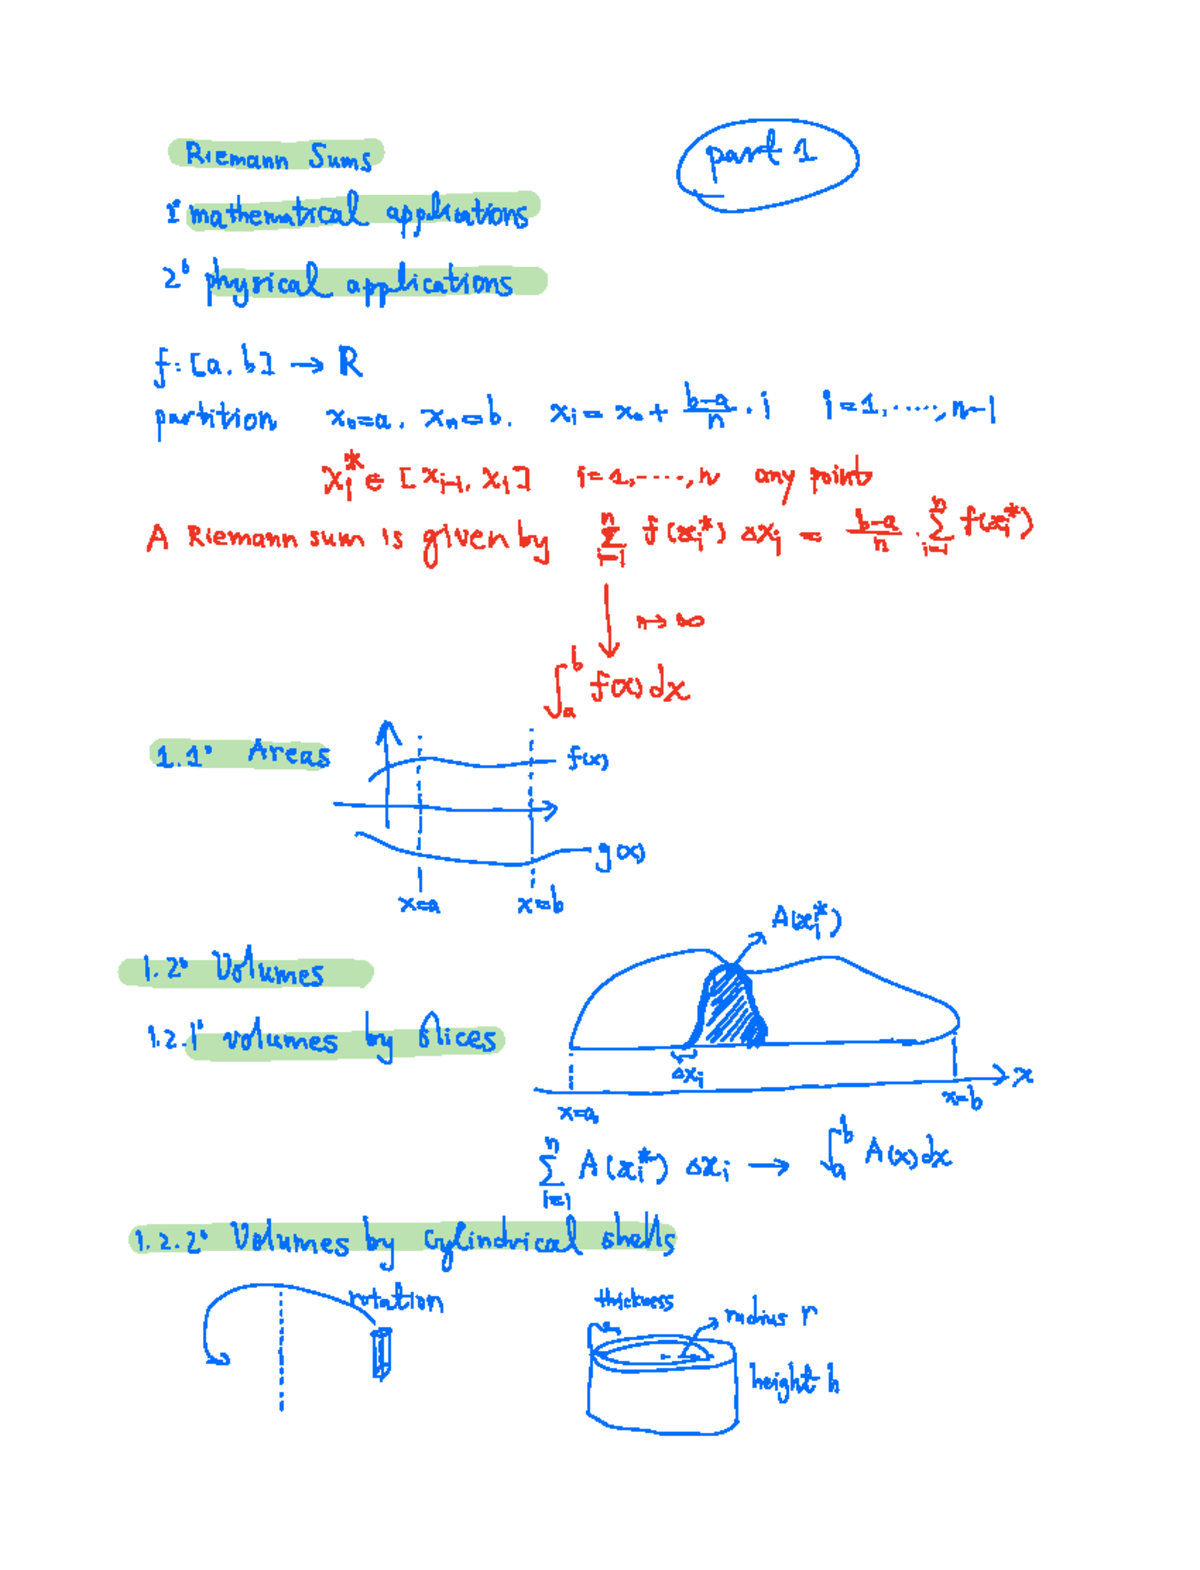 Riemann Sums
part 1
1° mathematical applications
2° physical applications
f: [a, b] → ℝ
partition x₀=a, xₙ=b. xᵢ = x₀ + (b-a)/n · i i=1,.....,n-1
xᵢ* ∈ [xᵢ₋₁, xᵢ] i=1,.....,n any point
A Riemann sum is given by ∑ᵢ₌₁ⁿ f(xᵢ*) Δxᵢ = (b-a)/n · ∑ᵢ₌₁ⁿ f(xᵢ*)
n→∞
∫ₐᵇ f(x) dx
1.1° Areas
f(x)
g(x)
x=a x=b
A(xᵢ*)
1.2° Volumes
1.2.1° volumes by slices
Δxᵢ
x
x=a x=b
∑ᵢ₌₁ⁿ A(xᵢ*) Δxᵢ → ∫ₐᵇ A(x) dx
1.2.2° Volumes by cylindrical shells
rotation
thickness
radius r
height h